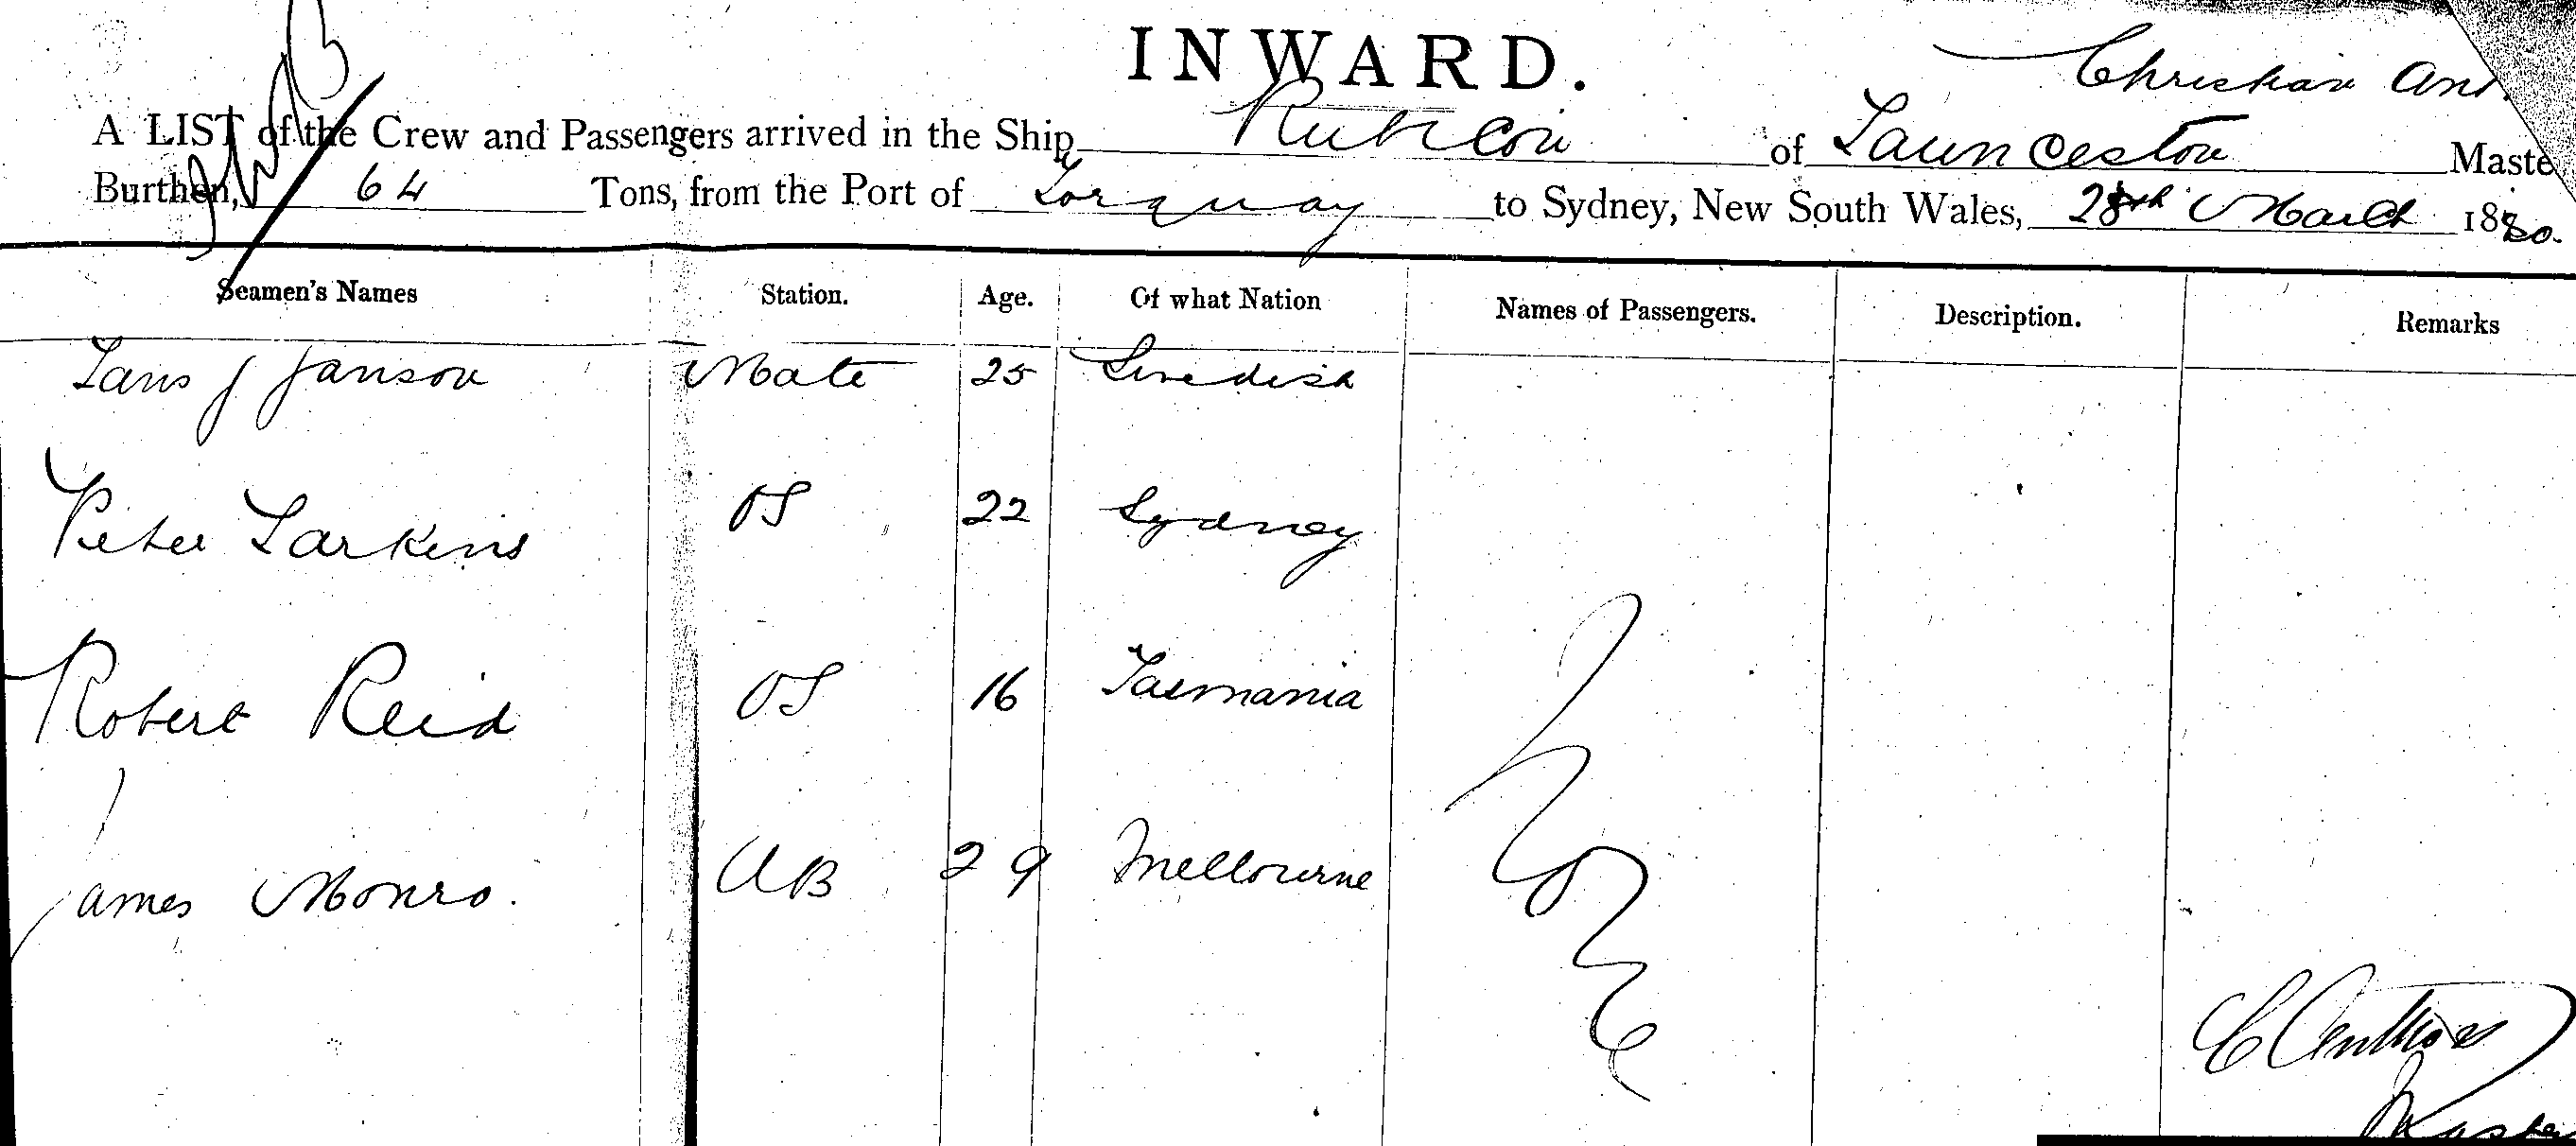 INWARD.
Christian
A LIST of the Crew and Passengers arrived in the Ship Rubicon of Launceston Maste
Burthen, 64 Tons, from the Port of Torquay to Sydney, New South Wales, 28th March 1880.
Seamen's Names Station. Age. Of what Nation Names of Passengers. Description. Remarks
Lans J Janson Mate 25 Swedish
Peter Larkins OS 22 Sydney
Robert Reid OS 16 Tasmania
James Monro. AB 29 Melbourne
Master